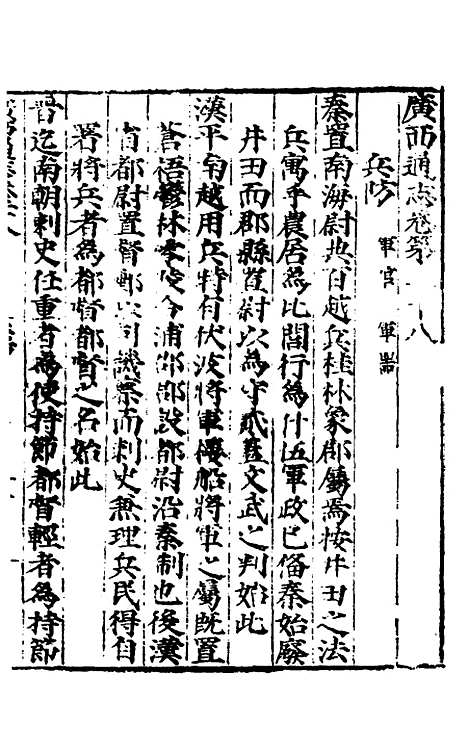 廣西通志卷第二十八
兵防 軍官 軍器
秦置南海尉典百越兵桂林象郡屬焉按井田之法
兵寓乎農居為比閭行為什伍軍政已備秦始廢
井田而郡縣置尉以為守貳蓋文武之判始此
漢平南越用兵特有伏波將軍樓船將軍之屬既置
蒼梧鬱林交趾合浦郡郡設都尉沿秦制也後漢
省都尉置督郵以司譏察而刺史兼理兵民得自
署將兵者為都督都督之名始此
晉迄南朝刺史任重者為使持節都督輕者為持節